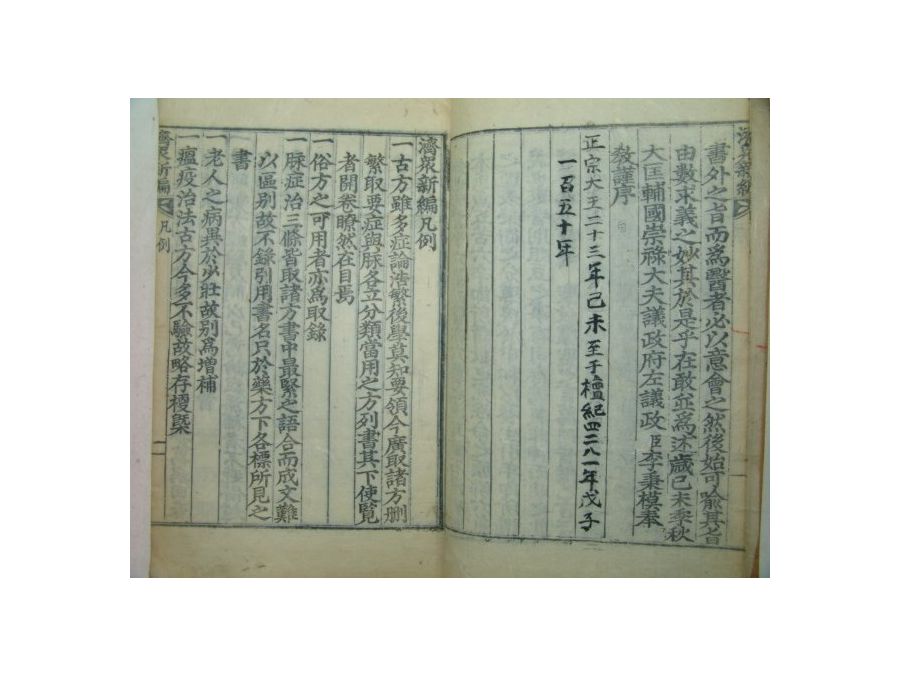 濟衆新編
書外之旨而爲醫者必以意會之然後始可喩其旨
由數求義之妙其於是乎在敢並爲述歲己未季秋
大匡輔國崇祿大夫議政府左議政臣李秉模奉
敎謹序
正宗大王二十三年己未至于檀紀四二八一年戊子
一百五十年
濟衆新編凡例
一古方雖多症論浩繁後學莫知要領今廣取諸方删
繁取要症與脉各立分類當用之方列書其下使覧
者開卷瞭然在目焉
一俗方之可用者亦爲取錄
一脉症治三條皆取諸方書中最緊之語合而成文難
以區別故不錄引用書名只於藥方下各標所見之
書
一老人之病異於少壯故別爲增補
一瘟疫治法古方今多不驗故略存梗槩
濟衆新編 凡例 一